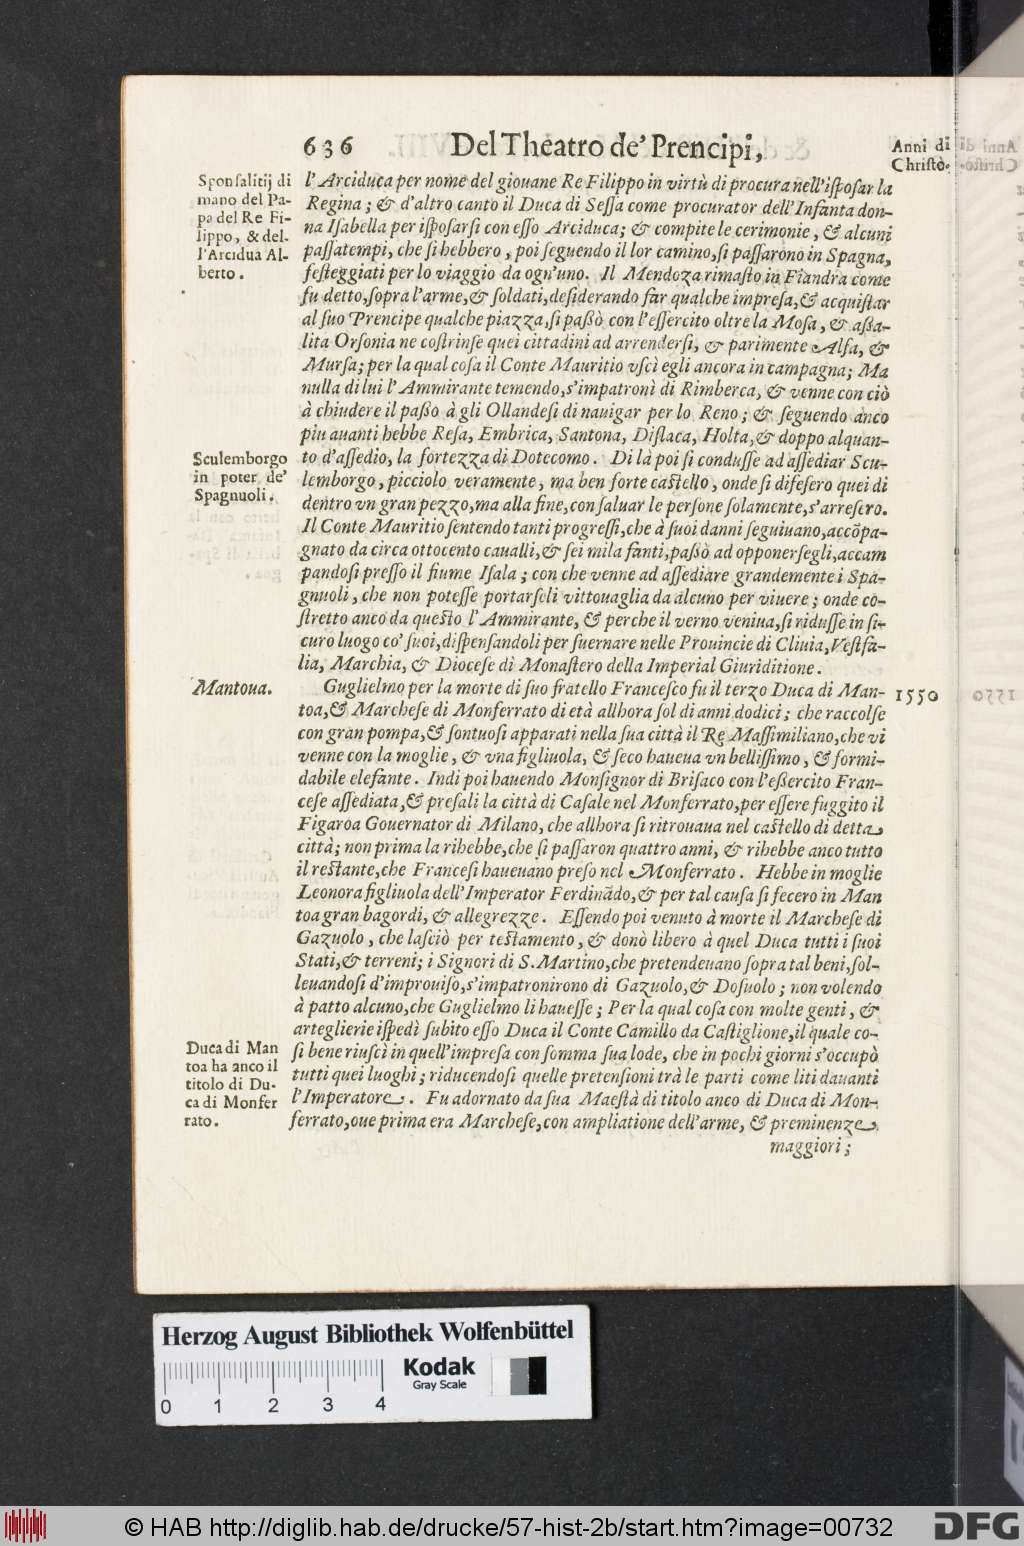 636 Del Theatro de' Prencipi,
Anni di
Christo.
Sponsalitij di
mano del Pa-
pa del Re Fi-
lippo, & del-
l'Arcidua Al-
berto.
l'Arciduca per nome del giouane Re Filippo in virtù di procura nell'isposar la
Regina; & d'altro canto il Duca di Sessa come procurator dell'Infanta don-
na Isabella per isposarsi con esso Arciduca; & compite le cerimonie, & alcuni
passatempi, che si hebbero, poi seguendo il lor camino, si passarono in Spagna,
festeggiati per lo viaggio da ogn'uno. Il Mendoza rimasto in Fiandra come
fu detto, sopra l'arme, & soldati, desiderando far qualche impresa, & acquistar
al suo Prencipe qualche piazza, si passò con l'essercito oltre la Mosa, & assa-
lita Orsonia ne costrinse quei cittadini ad arrendersi, & parimente Alsa, &
Mursa; per la qual cosa il Conte Mauritio vscì egli ancora in campagna; Ma
nulla di lui l'Ammirante temendo, s'impatronì di Rimberca, & venne con ciò
à chiudere il passo à gli Ollandesi di nauigar per lo Reno; & seguendo anco
più auanti hebbe Resa, Embrica, Santona, Dislaca, Holta, & doppo alquan-
Sculemborgo
in poter de'
Spagnuoli.
to d'assedio, la fortezza di Dotecomo. Di là poi si condusse ad assediar Scu-
lemborgo, picciolo veramente, ma ben forte castello, onde si difesero quei di
dentro vn gran pezzo, ma alla fine, con saluar le persone solamente, s'arresero.
Il Conte Mauritio sentendo tanti progressi, che à suoi danni seguiuano, accõpa-
gnato da circa ottocento caualli, & sei mila fanti, passò ad opponersegli, accam
pandosi presso il fiume Isala; con che venne ad assediare grandemente i Spa-
gnuoli, che non potesse portarseli vittouaglia da alcuno per viuere; onde co-
stretto anco da questo l'Ammirante, & perche il verno veniua, si ridusse in si-
curo luogo co' suoi, dispensandoli per suernare nelle Prouincie di Cliuia, Vestfa-
lia, Marchia, & Diocese di Monastero della Imperial Giuriditione.
Mantoua.
1550
Guglielmo per la morte di suo fratello Francesco fu il terzo Duca di Man-
toa, & Marchese di Monferrato di età allhora sol di anni dodici; che raccolse
con gran pompa, & sontuosi apparati nella sua città il Re Massimiliano, che vi
venne con la moglie, & vna figliuola, & seco haueua vn bellissimo, & formi-
dabile elefante. Indi poi hauendo Monsignor di Brisaco con l'essercito Fran-
cese assediata, & presali la città di Casale nel Monferrato, per essere fuggito il
Figaroa Gouernator di Milano, che allhora si ritrouaua nel castello di detta
città; non prima la rihebbe, che si passaron quattro anni, & rihebbe anco tutto
il restante, che Francesi haueuano preso nel Monferrato. Hebbe in moglie
Leonora figliuola dell'Imperator Ferdinãdo, & per tal causa si fecero in Man
toa gran bagordi, & allegrezze. Essendo poi venuto à morte il Marchese di
Gazuolo, che lasciò per testamento, & donò libero à quel Duca tutti i suoi
Stati, & terreni; i Signori di S. Martino, che pretendeuano sopra tal beni, sol-
leuandosi d'improuiso, s'impatronirono di Gazuolo, & Dosuolo; non volendo
à patto alcuno, che Guglielmo li hauesse; Per la qual cosa con molte genti, &
arteglierie ispedì subito esso Duca il Conte Camillo da Castiglione, il quale co-
Duca di Man
toa ha anco il
titolo di Du-
ca di Monfer
rato.
sì bene riuscì in quell'impresa con somma sua lode, che in pochi giorni s'occupò
tutti quei luoghi; riducendosi quelle pretensioni trà le parti come liti dauanti
l'Imperatore. Fu adornato da sua Maestà di titolo anco di Duca di Mon-
ferrato, oue prima era Marchese, con ampliatione dell'arme, & preminenze
maggiori;
Herzog August Bibliothek Wolfenbüttel
Kodak
Gray Scale
0 1 2 3 4
© HAB http://diglib.hab.de/drucke/57-hist-2b/start.htm?image=00732
DFG